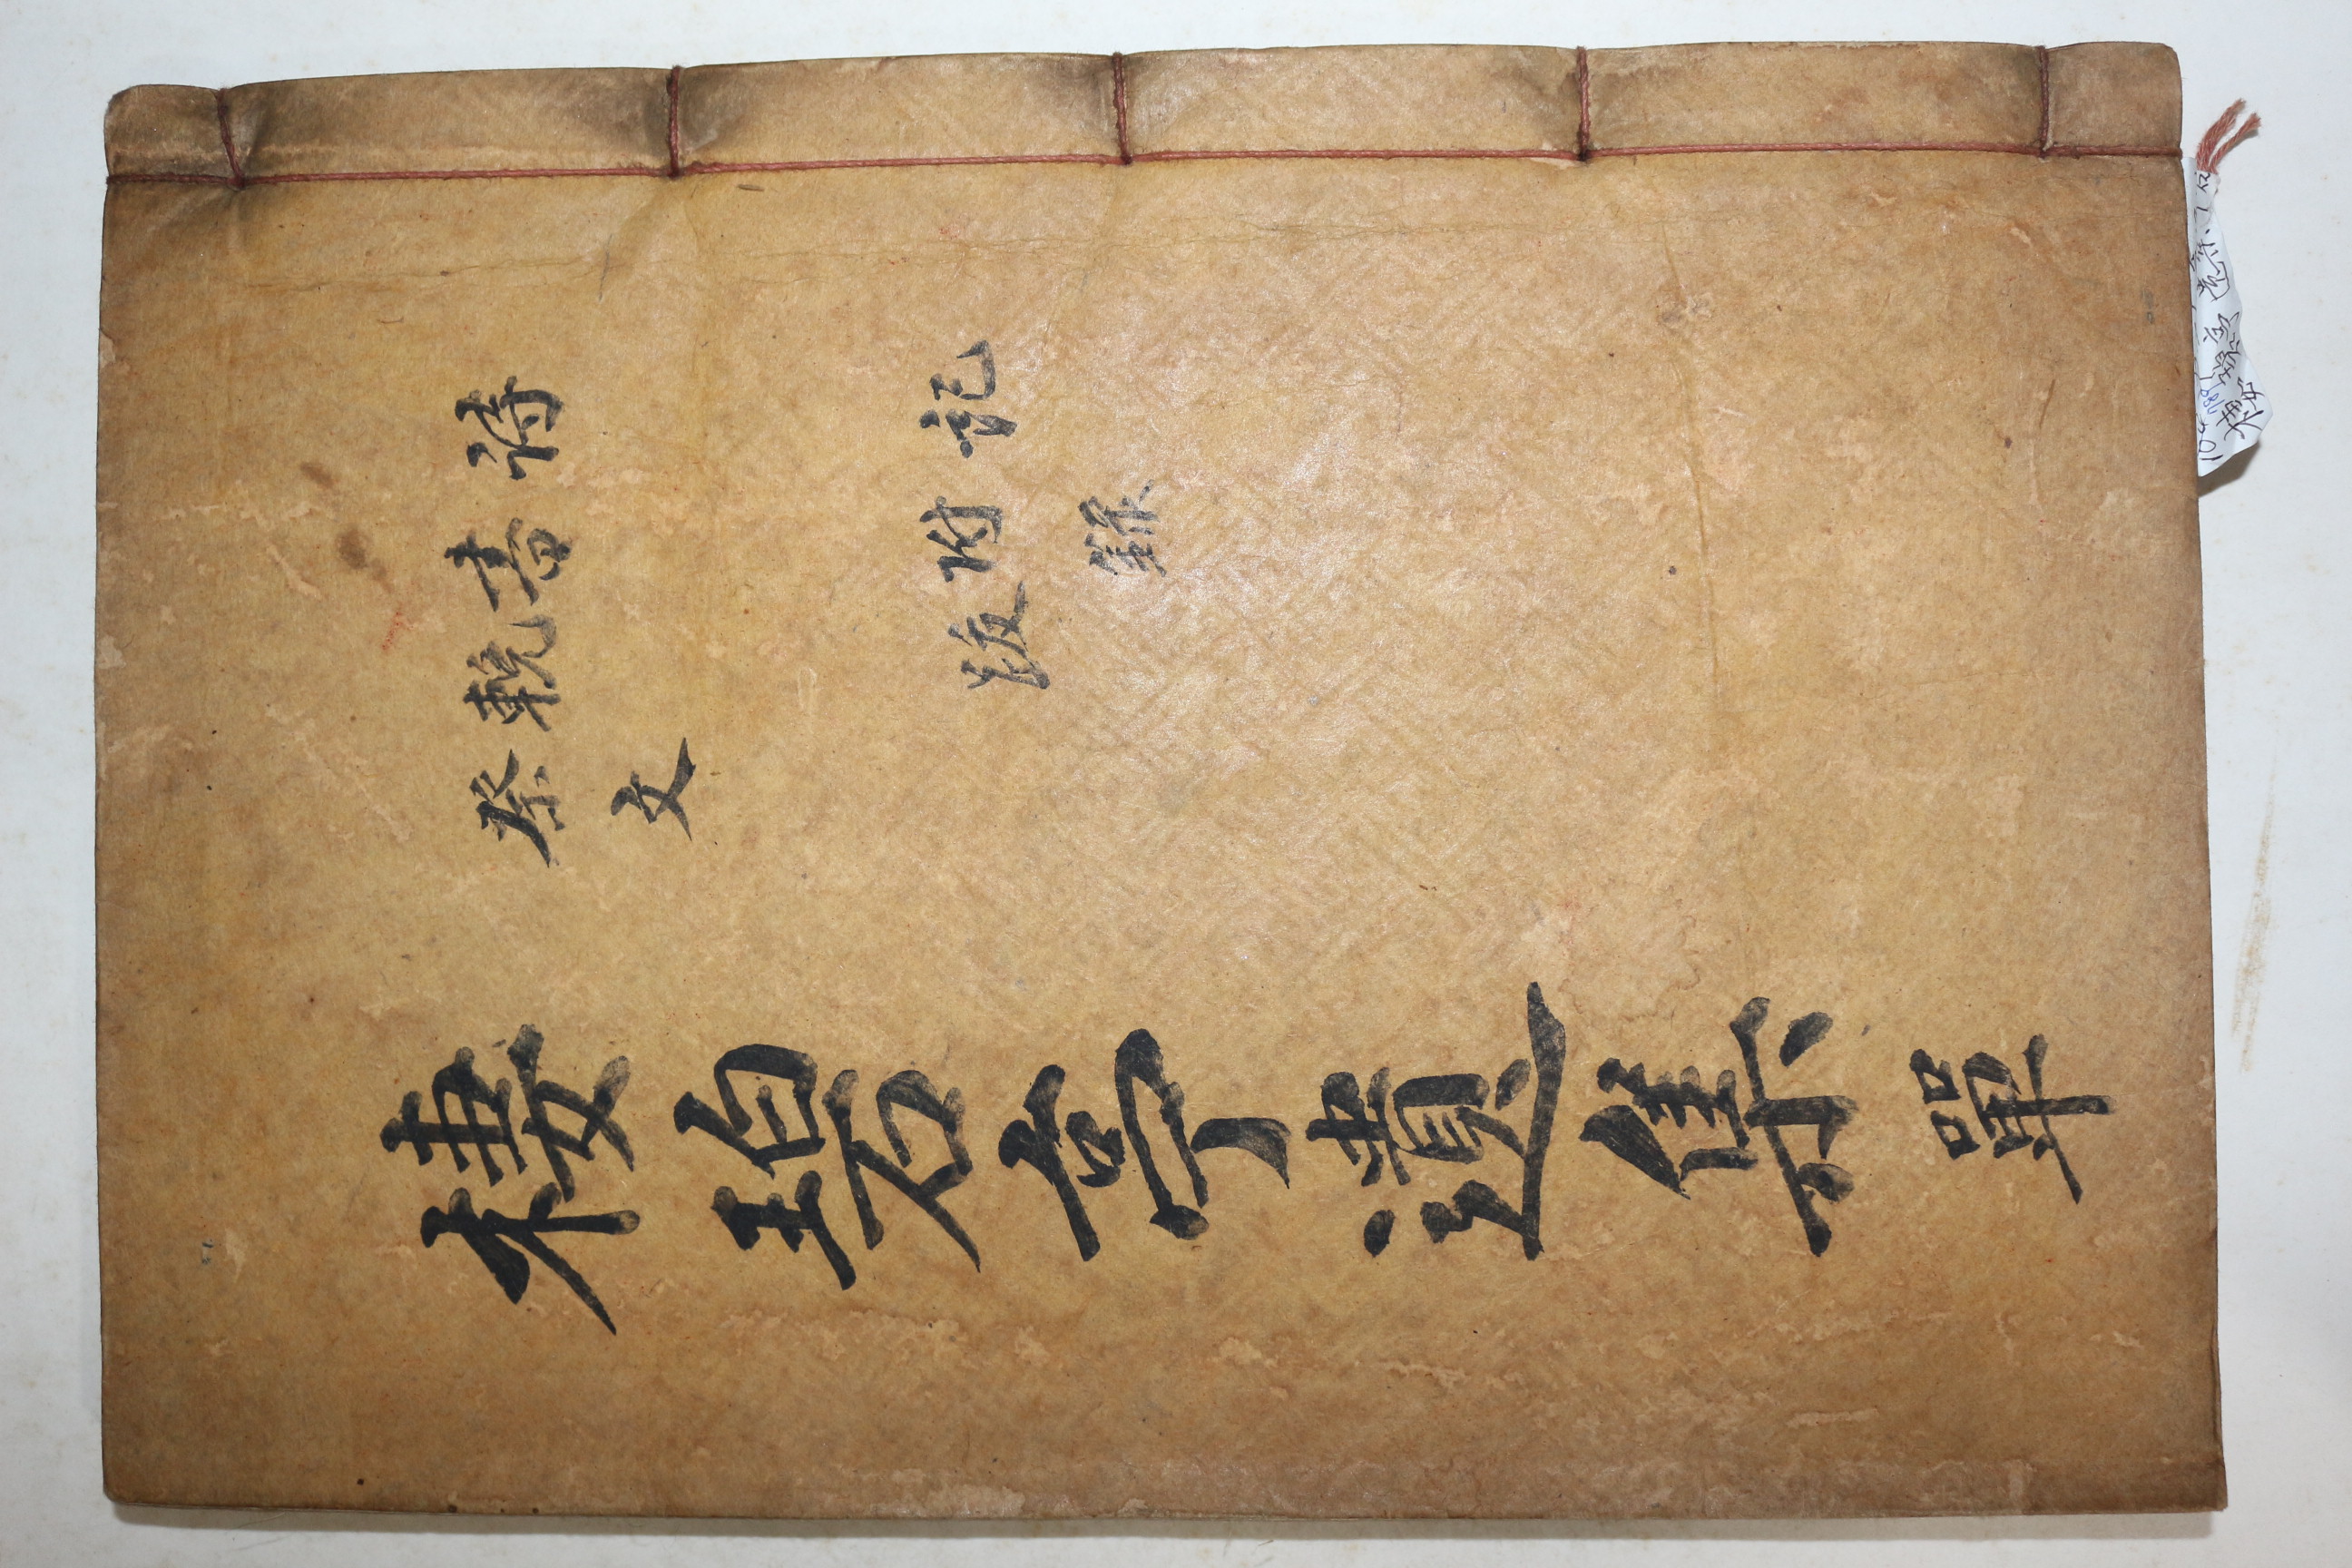 詩 書 輓 祭文
記 附錄 跋
棲碧亭遺集 單
棲碧亭